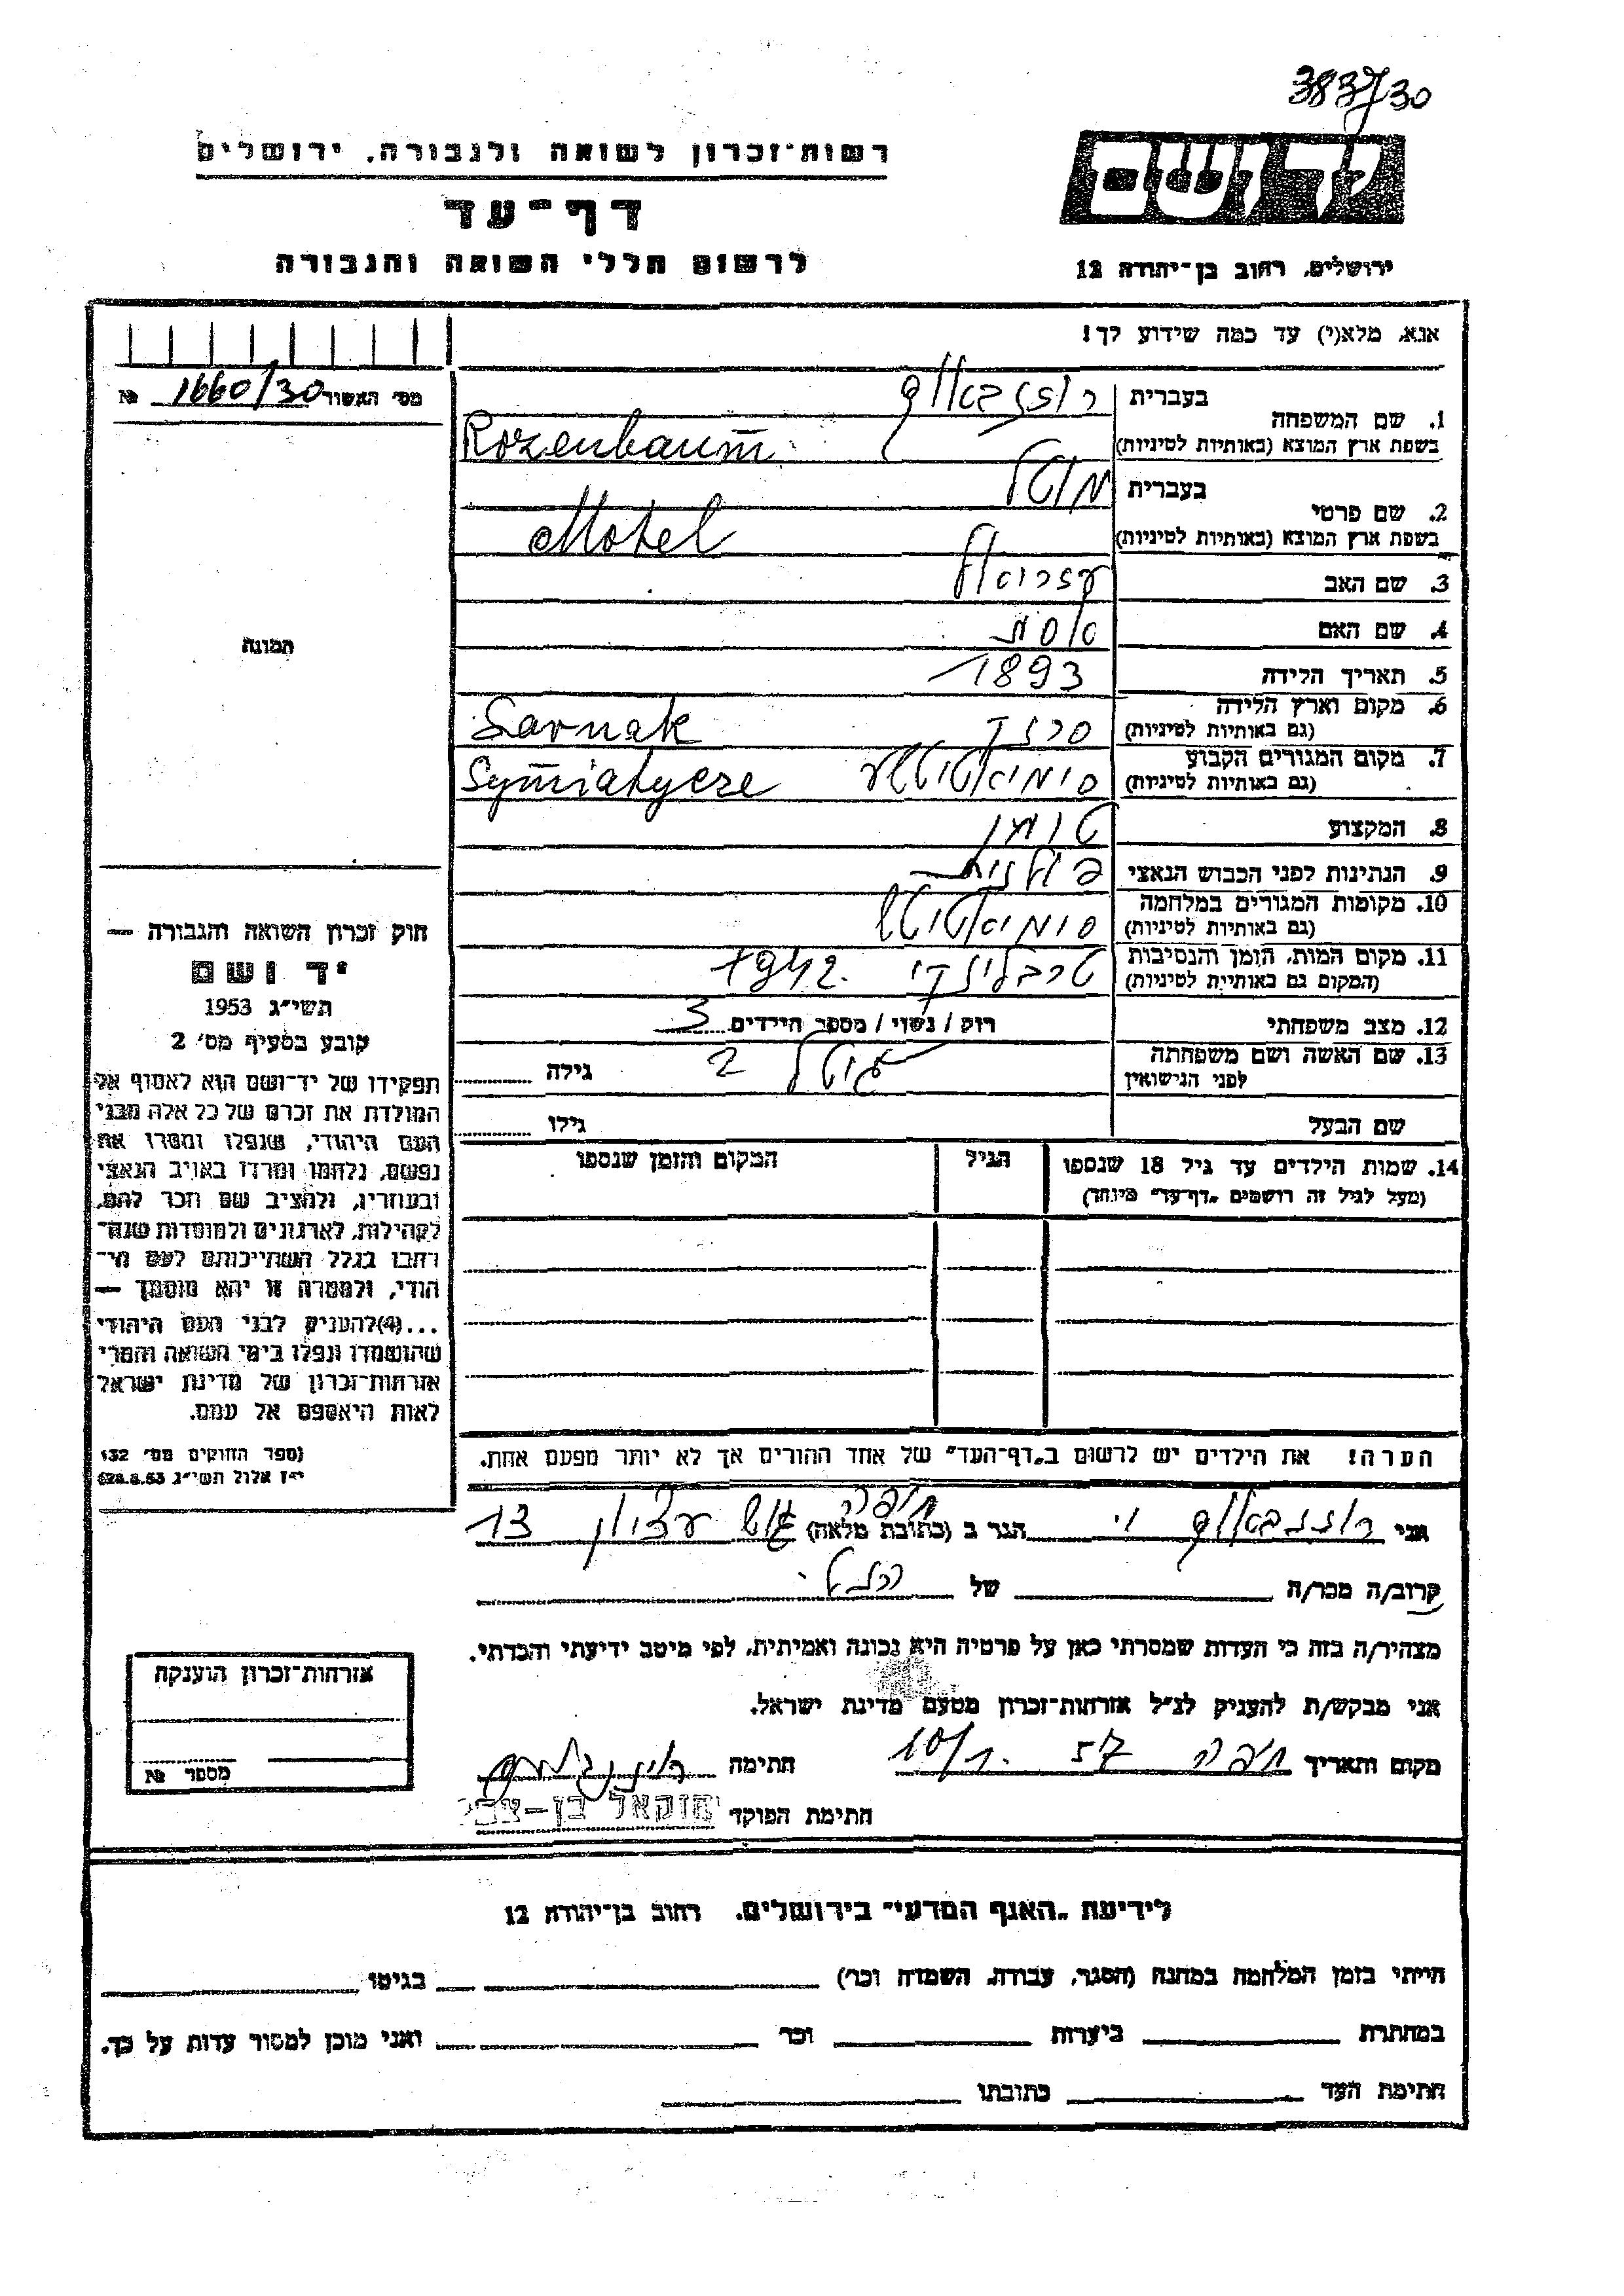 383/30
יד ושם
רשות־זכרון לשואה ולגבורה, ירושלים
דף־עד
לרשום חללי השואה והגבורה
ירושלים, רחוב בן־יהודה 12
אנא, מלא(י) עד כמה שידוע לך!
מס׳ האשור 1660/30 №
1. שם המשפחה
בעברית רוזנבאום
בשפת ארץ המוצא (באותיות לטיניות) Rozenbaum
2. שם פרטי
בעברית מוטל
בשפת ארץ המוצא (באותיות לטיניות) Motel
3. שם האב
4. שם האם
5. תאריך הלידה 1893
6. מקום וארץ הלידה
(גם באותיות לטיניות) Sarnak
7. מקום המגורים הקבוע
(גם באותיות לטיניות) Symiatycze
8. המקצוע טוחן
9. הנתינות לפני הכבוש הנאצי פולנית
10. מקומות המגורים במלחמה
(גם באותיות לטיניות)
11. מקום המות, הזמן והנסיבות
(המקום גם באותיות לטיניות) 1942.
12. מצב משפחתי רוק / נשוי / מספר הילדים 3
13. שם האשה ושם משפחתה
לפני הנישואין גיטל גילה
שם הבעל גילו
14. שמות הילדים עד גיל 18 שנספו
(מעל לגיל זה רושמים „דף־עד״ מיוחד)
הגיל
המקום והזמן שנספו
הערה! את הילדים יש לרשום ב„דף־העד״ של אחד ההורים אך לא יותר מפעם אחת.
תמונה
חוק זכרון השואה והגבורה —
יד ושם
תשי״ג 1953
קובע בסעיף מס׳ 2
תפקידו של יד־ושם הוא לאסוף אל
המולדת את זכרם של כל אלה מבני
העם היהודי, שנפלו ומסרו את
נפשם, נלחמו ומרדו באויב הנאצי
ובעוזריו, ולהציב שם וזכר להם,
לקהילות, לארגונים ולמוסדות שנה־
רחבו בגלל השתייכותם לעם הי־
הודי, ולמטרה זו יהא מוסמך —
...(4)להעניק לבני העם היהודי
שהושמדו ונפלו בימי השואה והמרי
אזרחות־זכרון של מדינת ישראל
לאות היאספם אל עמם.
(ספר החוקים מס׳ 132
י״ז אלול תשי״ג 28.8.53)
אני רוזנבאום הגר ב (כתובת מלאה) חיפה גוש עציון 13
קרוב/ה מכר/ה של
מצהיר/ה בזה כי העדות שמסרתי כאן על פרטיה היא נכונה ואמיתית, לפי מיטב ידיעתי והכרתי.
אני מבקש/ת להעניק לנ״ל אזרחות־זכרון מטעם מדינת ישראל.
מקום ותאריך חיפה 57 10/1. חתימה
חתימת הפוקד
אזרחות־זכרון הוענקה
מספר №
לידיעת „האגף המדעי״ בירושלים, רחוב בן־יהודה 12
הייתי בזמן המלחמה במחנה (הסגר, עבודה, השמדה וכו׳) בגיטו
במחתרת ביערות וכו׳ ואני מוכן למסור עדות על כך.
חתימת העד כתובתו